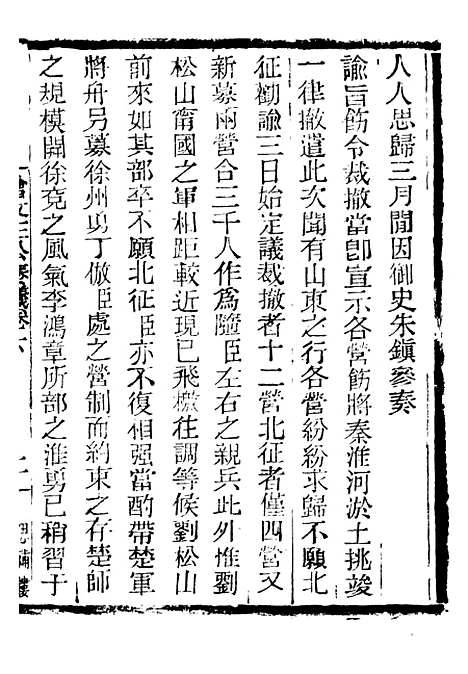 人人思歸三月閒因御史朱鎮參奏
諭旨飭令裁撤當卽宣示各營飭將秦淮河淤土挑竣
一律撤遣此次聞有山東之行各營紛紛求歸不願北
征勸諭三日始定議裁撤者十二營北征者僅四營又
新募兩營合三千人作爲隨臣左右之親兵此外惟劉
松山甯國之軍相距較近現已飛檄往調等候劉松山
前來如其部卒不願北征臣亦不復相强當酌帶楚軍
將弁另募徐州勇丁倣臣處之營制而約束之存楚師
之規模開徐兗之風氣李鴻章所部之淮勇已稍習于